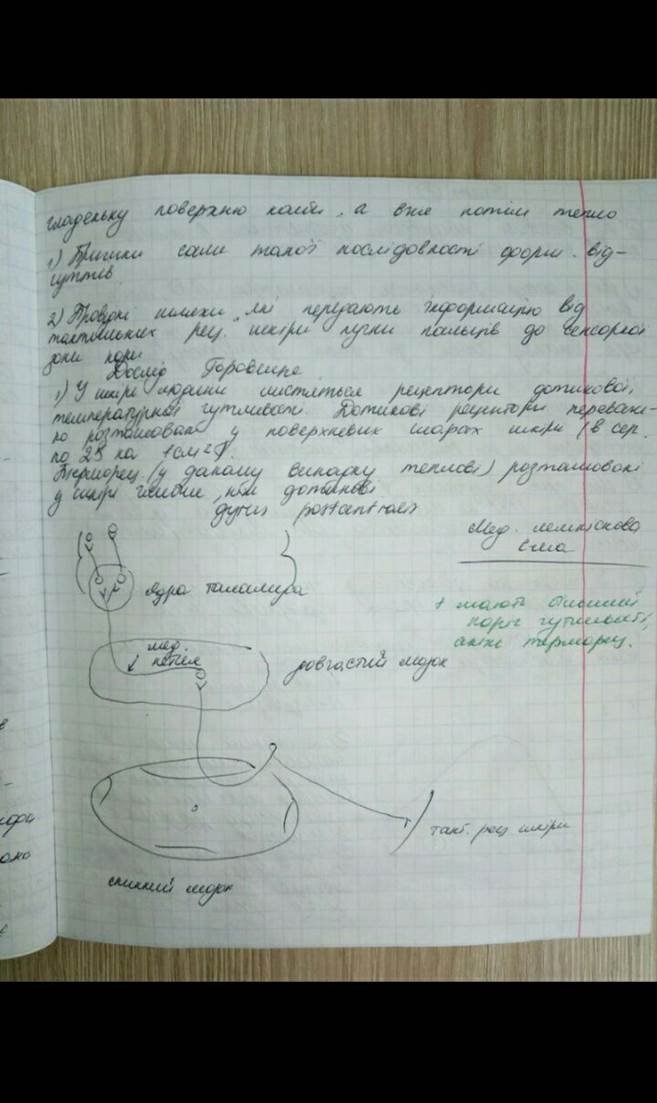 гладеньку поверхню колби, а вже потім тепло
1) Причини саме такої послідовності форм. від-
чуттів
2) Провідні шляхи, які передають інформацію від
тактильних рец. шкіри пучки пальців до сенсорної
зони кори
Дослід
1) У шкірі людини містяться рецептори дотикової,
температурної чутливості. Дотикові рецептори переваж-
но розташовані у поверхневих шарах шкіри (в сер.
по 25 на 1см2).
Терморец. (у даному випадку теплові) розташовані
у шкірі глибше, ніж дотикові
gyrus postcentralis
Мед. лемніскова
+ мають
поріг чутливості,
аніж терморец.
ядра таламуса
мед.
петля
довгастий мозок
такт. рец. шкіри
спинний мозок